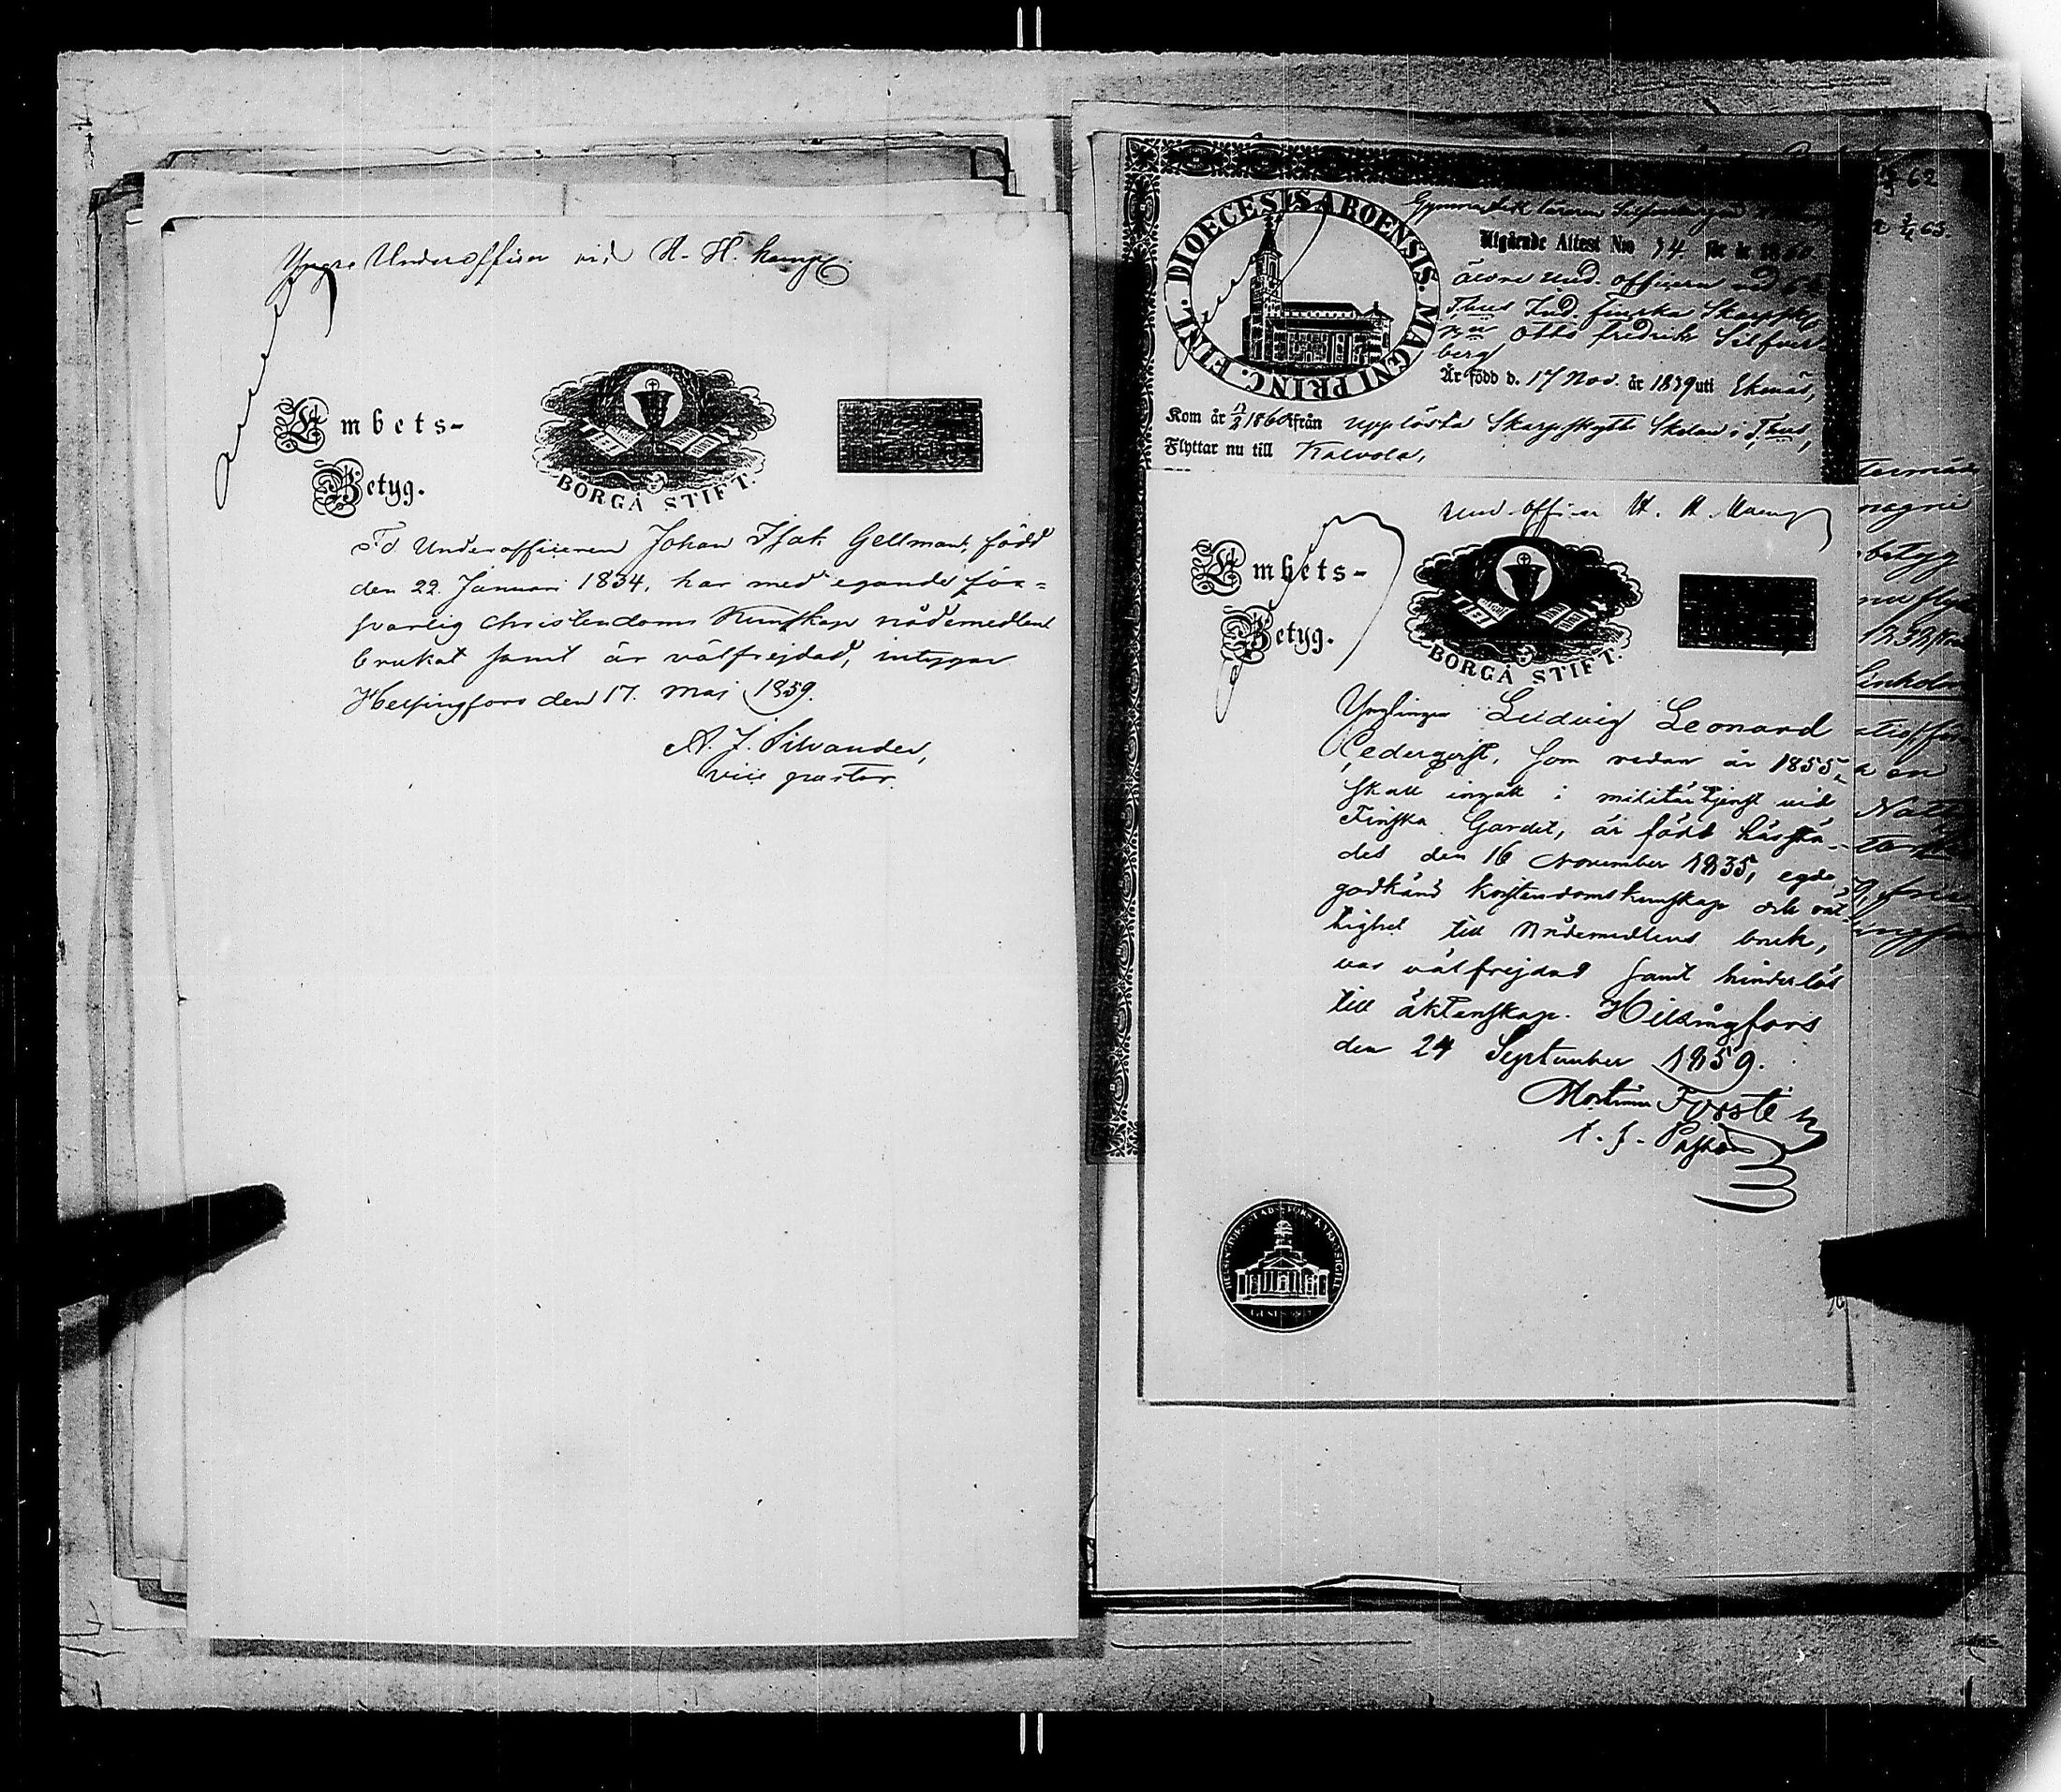 Yngre Underofficer vid
Embets-
Betyg.
BORGÅ STIFT.
F.d. Underofficeren Johan Isak Gellman, född
den 22 Januari 1834, har med egande för-
svarlig Christendoms Kunskap nådemedlen
brukat samt är välfrejdad, intygar
Helsingfors den 17. Maj 1859.
A. J. Silvander,
vice pastor.
62
65.
DIOECESIS ABOENSIS. MAGNI PRINC. FINL.
Gymnastik läraren
Utgående Attest No 34. för år 1860
äldre Und. officeren vid
Finska
Otto Fredrik Silfver-
berg
Är född d. 17 Nov. år 1839 uti Ekenäs,
Kom år 1860 från upplösta Skarpskytte Skolan i
Flyttar nu till Kalvola,
Und. officer
Embets-
Betyg.
BORGÅ STIFT.
Ynglingen Ludvig Leonard
Cederqvist, som redan år 1855
skall ingått i militär tjenst vid
Finska Gardet, är född härstä-
des den 16 November 1835, egde
godkänd kristendomskunskap och rät-
tighet till Nådemedlens bruk,
var välfrejdad samt hinderlös
till äktenskap. Helsingfors
den 24 September 1859.
HELSINGFORS STADS FÖRS. KYRKOSIGILL